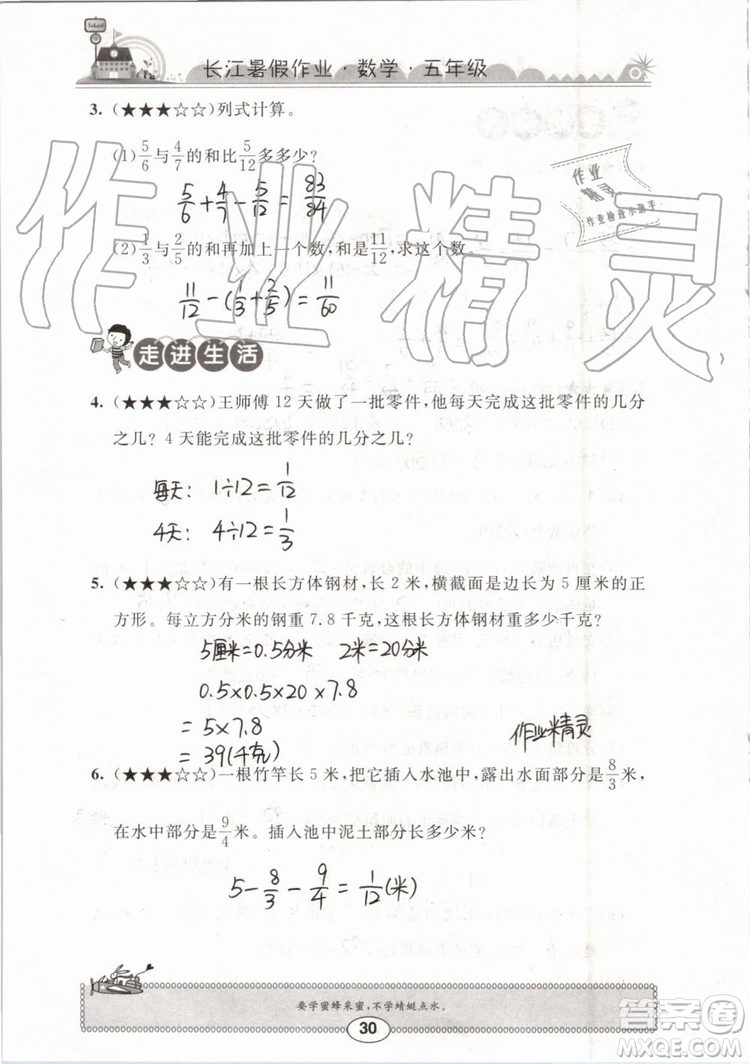 School
长江暑假作业·数学·五年级
3. (★★★☆☆)列式计算。
(1) 5/6 与 4/7 的和比 5/12 多多少?
5/6+4/7-5/12=83/84
(2) 1/3 与 2/5 的和再加上一个数,和是 11/12,求这个数。
11/12-(1/3+2/5)=11/60
走进生活
4. (★★★☆☆)王师傅 12 天做了一批零件,他每天完成这批零件的几分
之几? 4 天能完成这批零件的几分之几?
每天: 1÷12=1/12
4天: 4÷12=1/3
5. (★★★☆☆)有一根长方体钢材,长 2 米,横截面是边长为 5 厘米的正
方形。每立方分米的钢重 7.8 千克,这根长方体钢材重多少千克?
5厘米=0.5分米 2米=20分米
0.5×0.5×20×7.8
=5×7.8
=39(千克)
作业精灵
6. (★★★☆☆)一根竹竿长 5 米,把它插入水池中,露出水面部分是 8/3 米,
在水中部分是 9/4 米。插入池中泥土部分长多少米?
5-8/3-9/4=1/12(米)
要学蜜蜂采蜜,不学蜻蜓点水。
30
作业精灵
作业
精灵
作业检查小帮手
答案圈
MXQE.COM